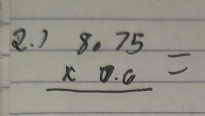 2.) 8.75
x 0.6 =